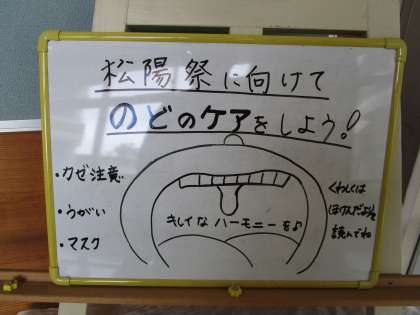 松陽祭に向けて
のどのケアをしよう!
・カゼ注意
・うがい
・マスク
キレイな ハーモニーを♪
くわしくは
ほけんだよりを
読んでね